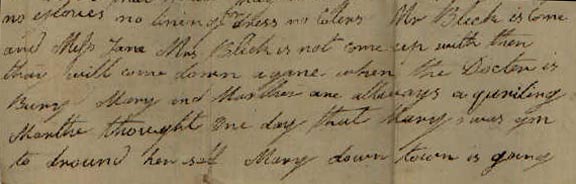 no stories no linen dress no letters Mr Bleck is come
and Miss Jane Mrs Bleck is not come up with then
thay will come down agane when the Docter is
Bury Mary and Marther are allways a quriling
Marthe thought one day that Mary was gon
to dround her self Mary down town is going